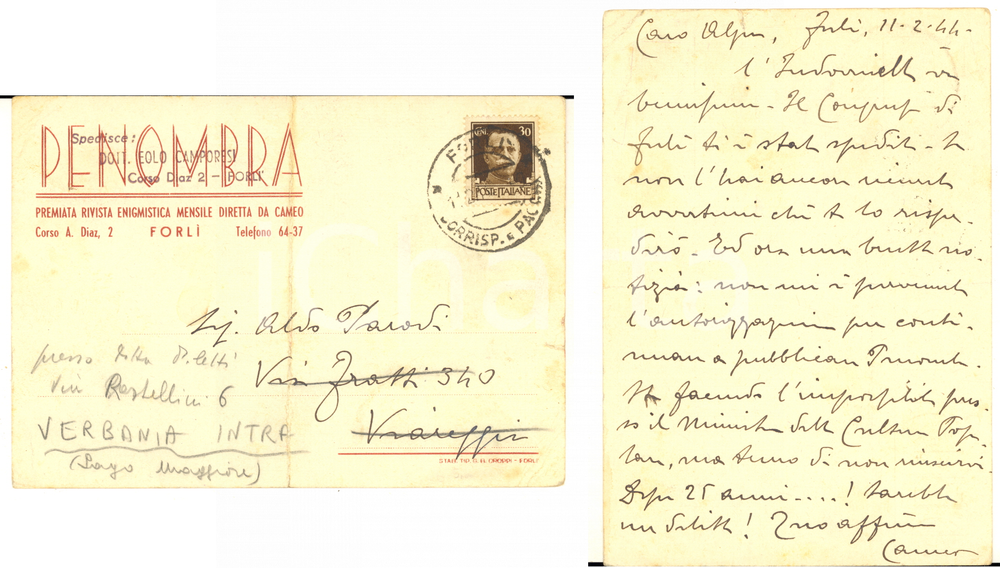 PENOMBRA
Spedisce:
DOTT. EOLO CAMPORESI
Corso Diaz 2 - FORLI
PREMIATA RIVISTA ENIGMISTICA MENSILE DIRETTA DA CAMEO
Corso A. Diaz, 2 FORLÌ Telefono 64-37
30
POSTE ITALIANE
CORRISP. E PACCHI
Sig. Aldo Parodi
Via Fratti 340
Viareggio
presso Ditta
Via Restellini 6
VERBANIA INTRA
(Lago Maggiore)
FORLÌ
iCharta
Caro Alpin, Forlì, 11-2-44-
l'Indovinello va
benissimo - Il Congresso di
Forlì ti è stato spedito - Se
non l'hai ancora ricevuto
avvertimi che te lo rispe-
dirò - Ed ora una brutta no-
tizia: non mi è pervenuta
l'autorizzazione per conti-
nuare a pubblicare Penombra.
Sto facendo l'impossibile pres-
so il Ministero della Cultura Popo-
lare, ma temo di non riuscirvi.
Dopo 25 anni....! Sarebbe
un delitto! Tuo aff.mo
Cameo